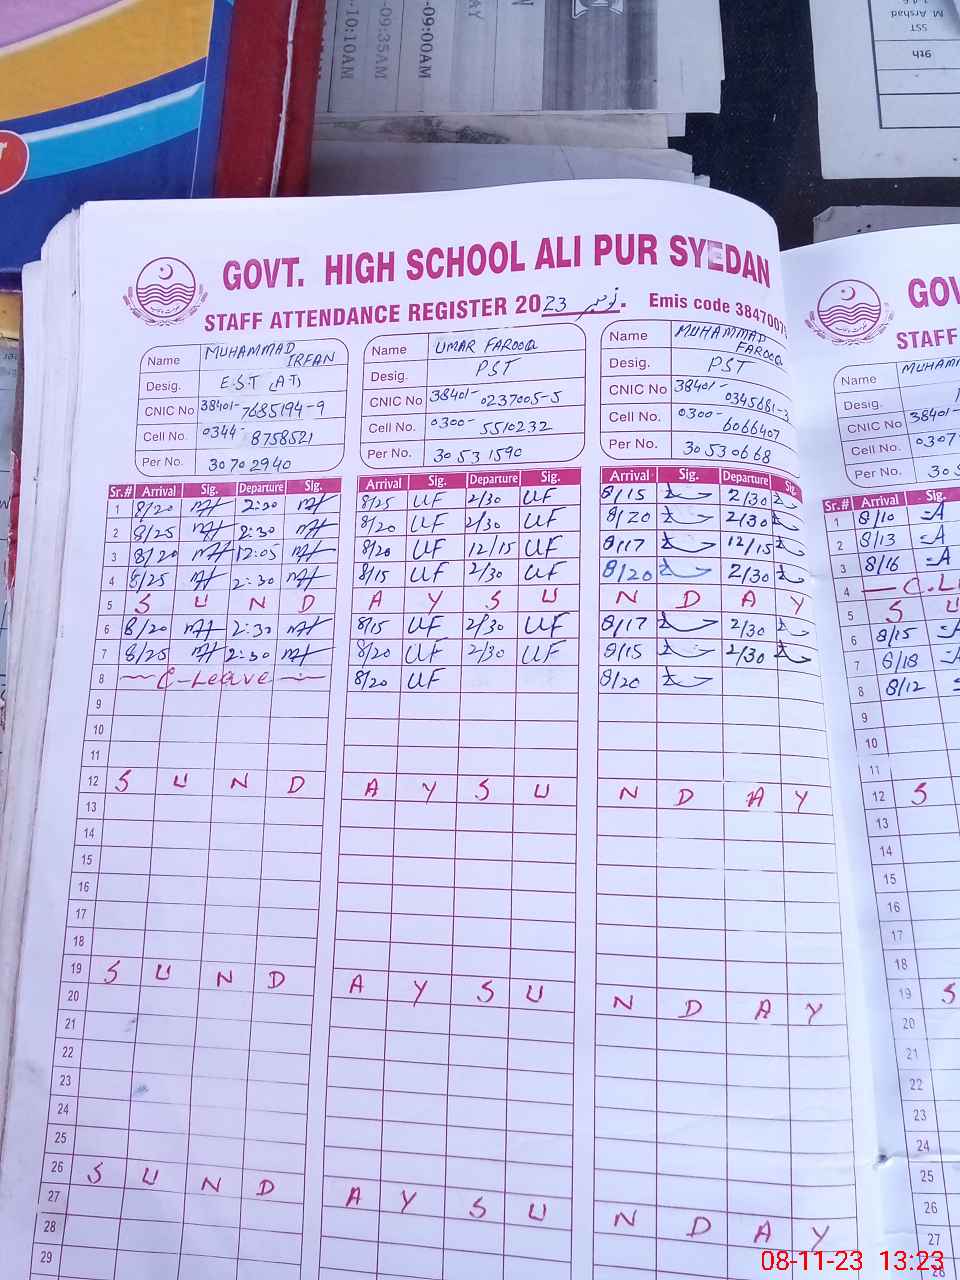 -09:00AM
-09:35AM
-10:10AM
M. Arshad
SST
9th
GOVT. HIGH SCHOOL ALI PUR SYEDAN
STAFF ATTENDANCE REGISTER 2023 نومبر. Emis code 3847007
Name MUHAMMAD IRFAN
Desig. E.S.T (A.T)
CNIC No 38401-7685194-9
Cell No. 0344-8758521
Per No. 30702940
Name UMAR FAROOQ
Desig. PST
CNIC No 38401-0237005-5
Cell No. 0300-5510232
Per No. 30531590
Name MUHAMMAD FAROOQ
Desig. PST
CNIC No 38401-0345681-3
Cell No. 0300-6066407
Per No. 30530668
Sr.# Arrival Sig. Departure Sig. Arrival Sig. Departure Sig. Arrival Sig. Departure Sig.
1 8/20 2:30 8/25 UF 2/30 UF 8/15 2/30
2 8/25 2:30 8/20 UF 2/30 UF 8/20 2/30
3 8/20 12:05 8/20 UF 12/15 UF 8/17 12/15
4 8/25 2:30 8/15 UF 2/30 UF 8/20 2/30
5 S U N D A Y S U N D A Y
6 8/20 2:30 8/15 UF 2/30 UF 8/17 2/30
7 8/25 2:30 8/20 UF 2/30 UF 8/15 2/30
8 C-Leave 8/20 UF 8/20
9
10
11
12 S U N D A Y S U N D A Y
13
14
15
16
17
18
19 S U N D A Y S U N D A Y
20
21
22
23
24
25
26 S U N D A Y S U N D A Y
27
28
29
GOV
STAFF
Name MUHAMM
Desig.
CNIC No 38401-
Cell No. 0307
Per No. 305
Sr.# Arrival Sig.
1 8/10 A
2 8/13 A
3 8/16 A
4 C.L
5 S U
6 8/15
7 8/18
8 8/12
9
10
11
12 S
13
14
15
16
17
18
19 S
20
21
22
23
24
25
26
27
28
08-11-23 13:23